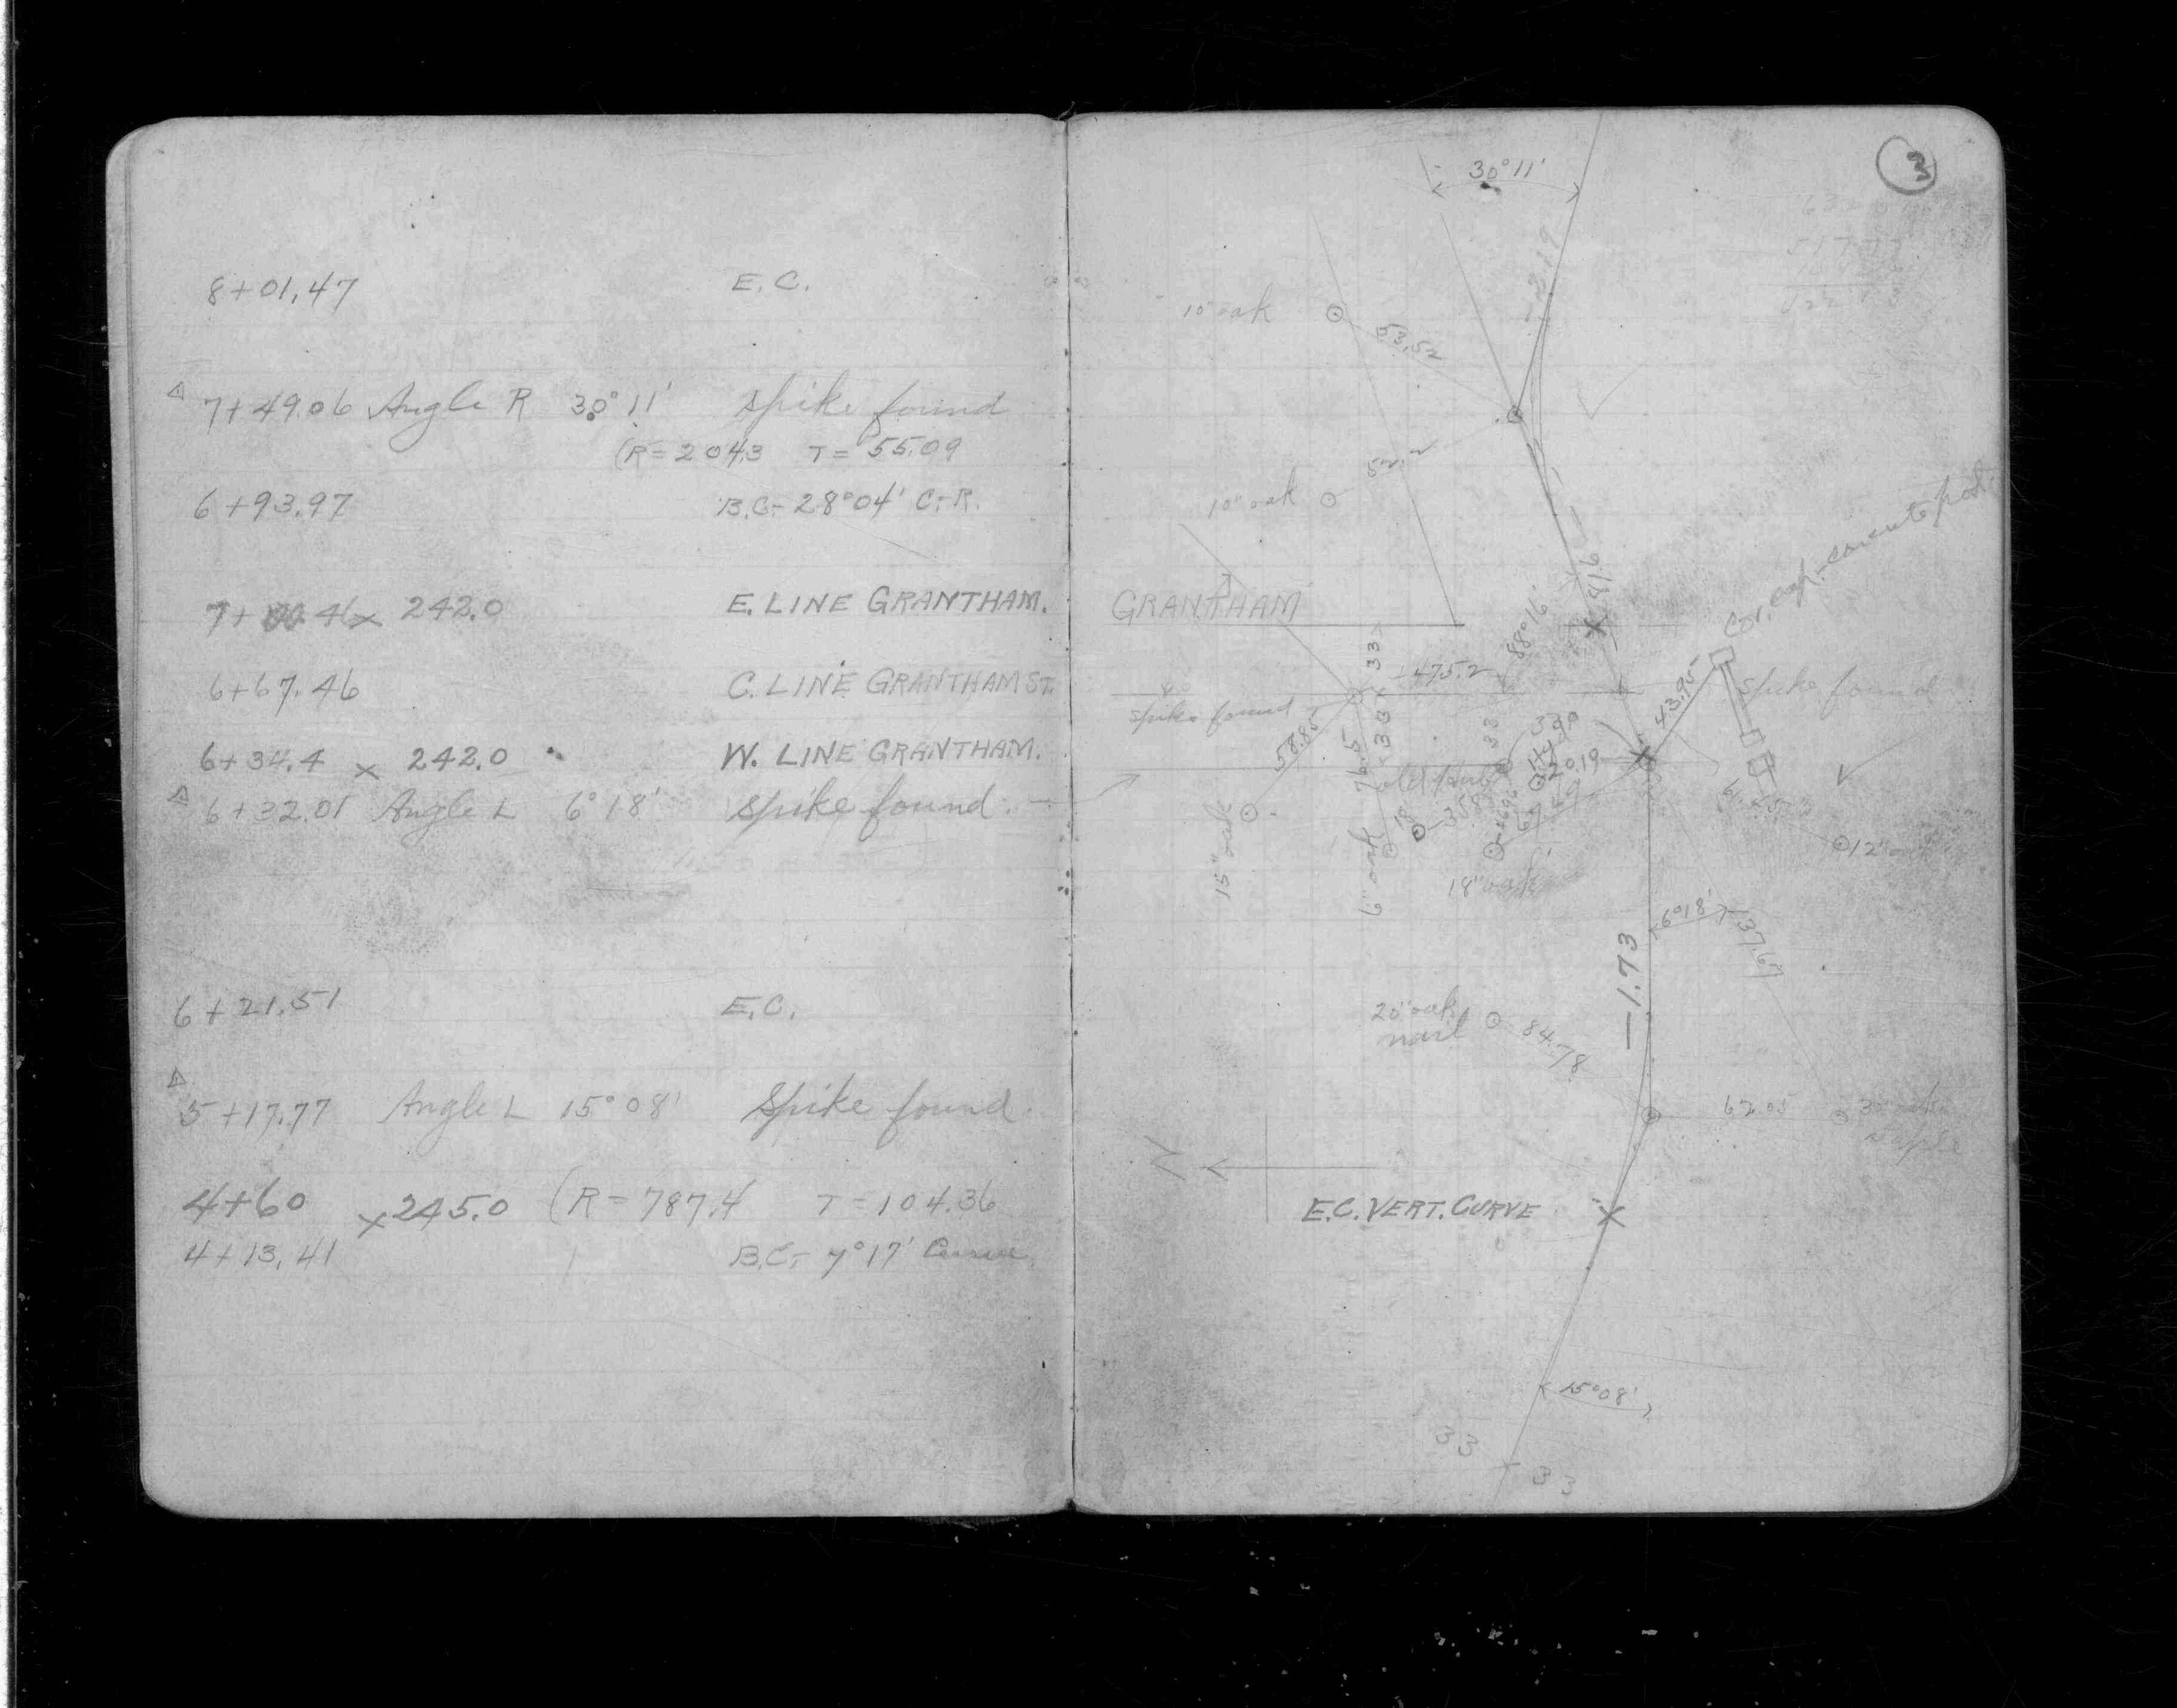 8+01.47 E.C.
△ 7+49.06 Angle R 30°11' Spike found
(R=204.3 T=55.09
6+93.97 B.C.- 28°04' C-R.
7+00.46 x 242.0 E. LINE GRANTHAM.
6+67.46 C. LINE GRANTHAM ST.
6+34.4 x 242.0 W. LINE GRANTHAM.
△ 6+32.01 Angle L 6°18' Spike found.
6+21.51 E.C.
△
5+17.77 Angle L 15°08' Spike found
4+60 x 245.0 (R=787.4 T=104.36
4+13.41 B.C.- 7°17' Curve
3
30°11'
-2.19
10" oak
53.52
52.2
10" oak
-4.16
Cor. conc. concrete post
GRANTHAM
88°16'
33
475.2
43.95
spike found
spike found
58.85
33
76.5
33
20.19
15" oak
6" oak
18
18" oak
12"
6°18'
37.67
-1.73
20" oak
nail
84.78
62.05
N
E.C. VERT. CURVE
15°08'
33
33